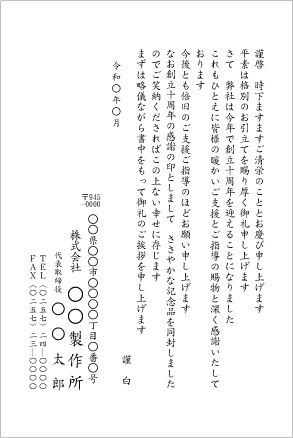 謹啓　時下ますますご清栄のこととお慶び申し上げます
平素は格別のお引立てを賜り厚く御礼申し上げます
さて　弊社は今年で創立十周年を迎えることになりました
これもひとえに皆様の暖かいご支援とご指導の賜物と深く感謝いたして
おります
今後とも倍旧のご支援ご指導のほどお願い申し上げます
なお創立十周年の感謝の印としまして　ささやかな記念品を同封しました
のでご笑納くださればこの上ない幸せに存じます
まずは略儀ながら書中をもって御礼のご挨拶を申し上げます
謹　白
令和〇年〇月
〒945-0000
〇〇県〇〇市〇〇〇〇丁目〇番〇号
株式会社　〇〇製作所
代表取締役　〇〇太郎
ＴＥＬ（〇二五七）二四―〇〇〇〇
ＦＡＸ（〇二五七）二三―〇〇〇〇